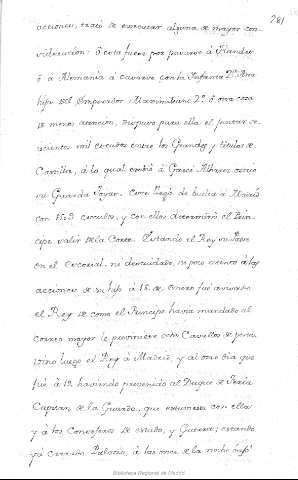 281
acciones, trató de executar alguna de mayor con-
sideracion: ó esta fuese por pasarse á Flandes
ó á Alemania á casarse con la Infanta Dª. Ana
hija del Emperador Maximiliano 2º. ó otra cosa
de menos atencion, dispuso para ella el juntar se-
cientos mil escudos entre los Grandes y titulos de
Castilla, á lo qual embió á Garci Albarez osorio
su Guarda Joyas. Este llegó de buelta á Madrid
con escudos, y con ellos determinó el Prin-
cipe salir de la Corte. Estando el Rey su Padre
en el Escorial, ni descuidado, ni poco atento á las
acciones de su hijo á 18. de Enero fué avisado
el Rey de como el Principe havia mandado al
Correo mayor le previniese ocho Cavallos de posta,
vino luego el Rey á Madrid, y al otro dia que
fué á 19. haviendo prevenido al Duque de Feria
Capitan de la Guarda, que estuviese con ella
y á los Consejeros de estado, y Guerra, estando
ya cerrado Palacio, á las once de la noche bajó
Biblioteca Regional de Madrid